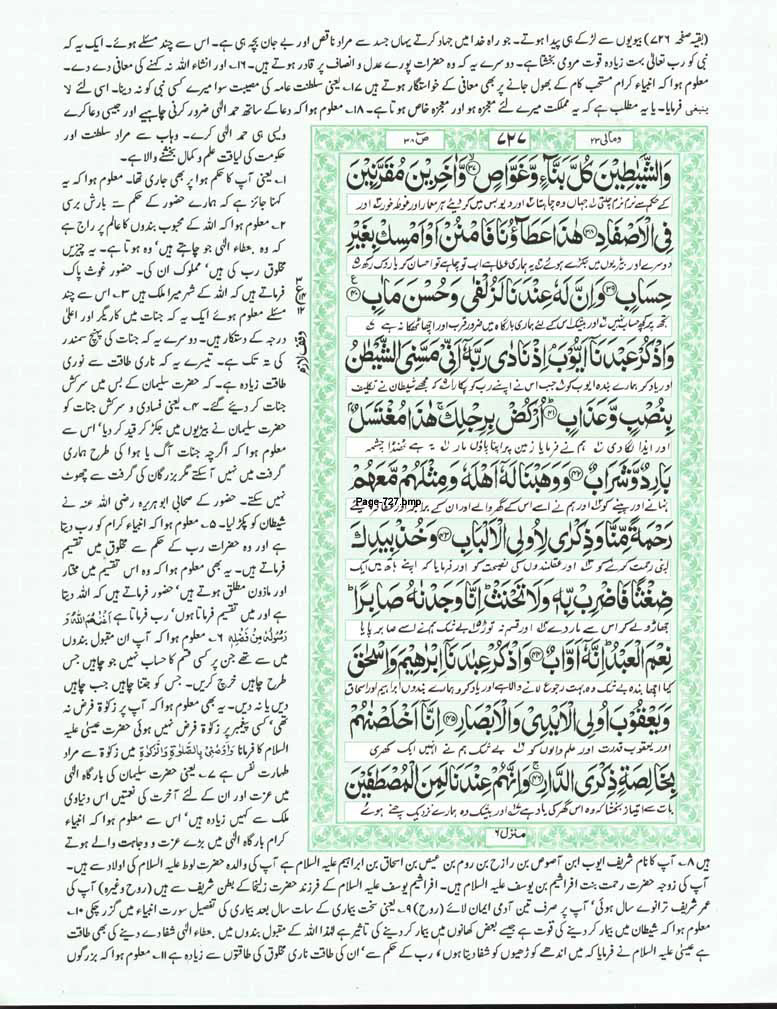 (بقیہ صفحہ ۷۲۶) بیویوں سے لڑکے ہی پیدا ہوتے۔ جو راہ خدا میں جہاد کرتے یہاں جسد سے مراد ناقص اور بے جان بچہ ہی ہے۔ اس سے چند مسئلے ہوئے۔ ایک یہ کہ
نبی کو رب تعالٰی بہت زیادہ قوت مردمی بخشتا ہے۔ دوسرے یہ کہ وہ حضرات پورے عدل و انصاف پر قادر ہوتے ہیں۔ ۱۶؎ اور انشاء اللہ نہ کہنے کی معافی دے دے۔
معلوم ہوا کہ انبیاء کرام مستحب کام کے بھول جانے پر بھی معافی کے خواستگار ہوتے ہیں ۱۷؎ یعنی سلطنت عامہ کی مصیبت سوا میرے کسی نبی کو نہ دینا۔ اسی لئے لا
ینبغی فرمایا۔ یا یہ مطلب ہے کہ یہ مملکت میرے لئے معجزہ ہو اور معجزہ خاص ہوتا ہے۔ ۱۸؎ معلوم ہوا کہ دعا کے ساتھ حمد الٰہی ضرور کرنی چاہیے اور جیسی دعا کرے
ویسی ہی حمد الٰہی کرے۔ وہاب سے مراد سلطنت اور
حکومت کی لیاقت علم و کمال بخشنے والا ہے۔
۱؎ یعنی آپ کا حکم ہوا پر بھی جاری تھا۔ معلوم ہوا کہ یہ
کہنا جائز ہے کہ ہمارے حضور کے حکم سے بارش برسی
۲؎ معلوم ہوا کہ اللہ کے محبوب بندوں کا عالم پر راج ہے
کہ وہ ،عطاء الٰہی جو چاہتے ہیں' وہ ہوتا ہے۔ یہ چیزیں
مخلوق رب کی ہیں' مملوک ان کی۔ حضور غوث پاک
فرماتے ہیں کہ اللہ کے شہر میرا ملک ہیں ۳؎ اس سے چند
مسئلے معلوم ہوئے ایک یہ کہ جنات میں کاریگر اور اعلیٰ
درجہ کے دستکار ہیں۔ دوسرے یہ کہ جنات کی پہنچ سمندر
کی تہ تک ہے۔ تیسرے یہ کہ ناری طاقت سے نوری
طاقت زیادہ ہے۔ کہ حضرت سلیمان کے بس میں سرکش
جنات کر دیئے گئے۔ ۴؎ یعنی فسادی و سرکش جنات کو
حضرت سلیمان نے بیڑیوں میں جکڑ کر قید کر دیا' اس سے
معلوم ہوا کہ اگرچہ جنات آگ یا ہوا کی طرح ہماری
گرفت میں نہیں آ سکتے مگر بزرگان کی گرفت سے چھوٹ
نہیں سکتے۔ حضور کے صحابی ابو ہریرہ رضی اللہ عنہ نے
شیطان کو پکڑ لیا۔ ۵؎ معلوم ہوا کہ انبیاء کرام کو رب دیتا
ہے اور وہ حضرات رب کے حکم سے مخلوق میں تقسیم
فرماتے ہیں۔ یہ بھی معلوم ہوا کہ وہ اس تقسیم میں مختار
اور ماذون مطلق ہوتے ہیں' حضور فرماتے ہیں کہ اللہ دیتا
ہے اور میں تقسیم فرماتا ہوں' رب فرماتا ہے اَغْنٰهُمُ اللّٰهُ وَ
رَسُوْلُهٗ مِنْ فَضْلِهٖ ۶؎ معلوم ہوا کہ آپ ان مقبول بندوں
میں سے تھے جن پر کسی قسم کا حساب نہیں جو چاہیں جس
طرح چاہیں خرچ کریں۔ جس کو جتنا چاہیں جب چاہیں
دیں یا نہ دیں۔ یہ بھی معلوم ہوا کہ آپ پر زکوٰۃ فرض نہ
تھی' کسی پیغمبر پر زکوٰۃ فرض نہیں ہوئی حضرت عیسٰی علیہ
السلام کا فرمانا وَاَوْصٰنِیْ بِالصَّلٰوةِ وَالزَّكٰوةِ میں زکوٰۃ سے مراد
طہارت نفس ہے ۷؎ یعنی حضرت سلیمان کی بارگاہ الٰہی
میں عزت اور ان کے لئے آخرت کی نعمتیں اس دنیاوی
ملک سے کہیں زیادہ ہیں' اس سے معلوم ہوا کہ انبیاء
کرام بارگاہ الٰہی میں بڑے عزت و وجاہت والے ہوتے
ومالی ۲۳
۷۲۷
ص ۳۸
وَالشَّيٰطِيْنَ كُلَّ بَنَّآءٍ وَّغَوَّاصٍ ۙ۳۷ وَّاٰخَرِيْنَ مُقَرَّنِيْنَ
کے حکم سے نرم نرم چلتی جہاں وہ چاہتا اور دیو بس میں کر دیئے ہر معمار اور غوطہ خور اور
فِى الْاَصْفَادِ ۳۸ هٰذَا عَطَآؤُنَا فَامْنُنْ اَوْ اَمْسِكْ بِغَيْرِ
دوسرے اور بیڑیوں میں جکڑے ہوئے یہ ہماری عطا ہے اب تو چاہے تو احسان کر یا روک رکھ
حِسَابٍ ۳۹ وَاِنَّ لَهٗ عِنْدَنَا لَزُلْفٰى وَحُسْنَ مَاٰبٍ ۴۰
تجھ پر کچھ حساب نہیں اور بیشک اس کے لئے ہماری بارگاہ میں ضرور قرب اور اچھا ٹھکانا ہے
وَاذْكُرْ عَبْدَنَآ اَيُّوْبَ ۘ اِذْ نَادٰى رَبَّهٗٓ اَنِّىْ مَسَّنِىَ الشَّيْطٰنُ
اور یاد کرو ہمارے بندہ ایوب کو جب اس نے اپنے رب کو پکارا کہ مجھے شیطان نے تکلیف
بِنُصْبٍ وَّعَذَابٍ ۴۱ اُرْكُضْ بِرِجْلِكَ ۚ هٰذَا مُغْتَسَلٌۢ
اور ایذا لگا دی ہم نے فرمایا زمین پر اپنا پاؤں مار یہ ہے ٹھنڈا چشمہ
بَارِدٌ وَّشَرَابٌ ۴۲ وَوَهَبْنَا لَهٗٓ اَهْلَهٗ وَمِثْلَهُمْ مَّعَهُمْ
Page-727.bmp
نہانے اور پینے کو اور ہم نے اسے اس کے گھر والے اور ان کے برابر اور
رَحْمَةً مِّنَّا وَذِكْرٰى لِاُولِى الْاَلْبَابِ ۴۳ وَخُذْ بِيَدِكَ
اپنی رحمت کرنے کو اور عقلمندوں کی نصیحت کو اور فرمایا کہ اپنے ہاتھ میں ایک
ضِغْثًا فَاضْرِبْ بِّهٖ وَلَا تَحْنَثْ ؕ اِنَّا وَجَدْنٰهُ صَابِرًا ؕ
جھاڑو لے کر اس سے مار دے اور قسم نہ توڑ بے شک ہم نے اسے صابر پایا
نِعْمَ الْعَبْدُ ؕ اِنَّهٗٓ اَوَّابٌ ۴۴ وَاذْكُرْ عِبٰدَنَآ اِبْرٰهِيْمَ وَاِسْحٰقَ
کیا اچھا بندہ بے شک وہ بہت رجوع لانے والا ہے اور یاد کرو ہمارے بندوں ابراہیم اور اسحاق
وَيَعْقُوْبَ اُولِى الْاَيْدِىْ وَالْاَبْصَارِ ۴۵ اِنَّآ اَخْلَصْنٰهُمْ
اور یعقوب قدرت اور علم والوں کو بے شک ہم نے انہیں ایک کھری
بِخَالِصَةٍ ذِكْرَى الدَّارِ ۴۶ وَاِنَّهُمْ عِنْدَنَا لَمِنَ الْمُصْطَفَيْنَ
بات سے امتیاز بخشا کہ وہ اس گھر کی یاد ہے اور بیشک وہ ہمارے نزدیک چنے ہوئے
منزل ۶
وقف لازم
ہیں ۸؎ آپ کا نام شریف ایوب ابن آصوص بن رازح بن روم بن عیص بن اسحاق بن ابراہیم علیہ السلام ہے آپ کی والدہ حضرت لوط علیہ السلام کی اولاد سے ہیں۔
آپ کی زوجہ حضرت رحمت بنت افراثیم بن یوسف علیہ السلام ہیں۔ افراثیم یوسف علیہ السلام کے فرزند حضرت زلیخا کے بطن شریف سے ہیں (روح وغیرہ) آپ کی
عمر شریف ترانوے سال ہوئی' آپ پر صرف تین آدمی ایمان لائے (روح) ۹؎ یعنی سخت بیماری کے سات سال بعد بیماری کی تفصیل سورت انبیاء میں گزر چکی ۱۰؎
معلوم ہوا کہ شیطان میں بیمار کر دینے کی قوت ہے جیسے بعض کھانوں میں بیمار کر دینے کی تاثیر ہے لہٰذا اللہ کے مقبول بندوں میں ،عطاء الٰہی شفا دے دینے کی بھی طاقت
ہے عیسٰی علیہ السلام نے فرمایا کہ میں اندھے کوڑھیوں کو شفا دیتا ہوں' رب کے حکم سے' ان کی طاقت ناری مخلوق کی طاقتوں سے زیادہ ہے ۱۱؎ معلوم ہوا کہ بزرگوں